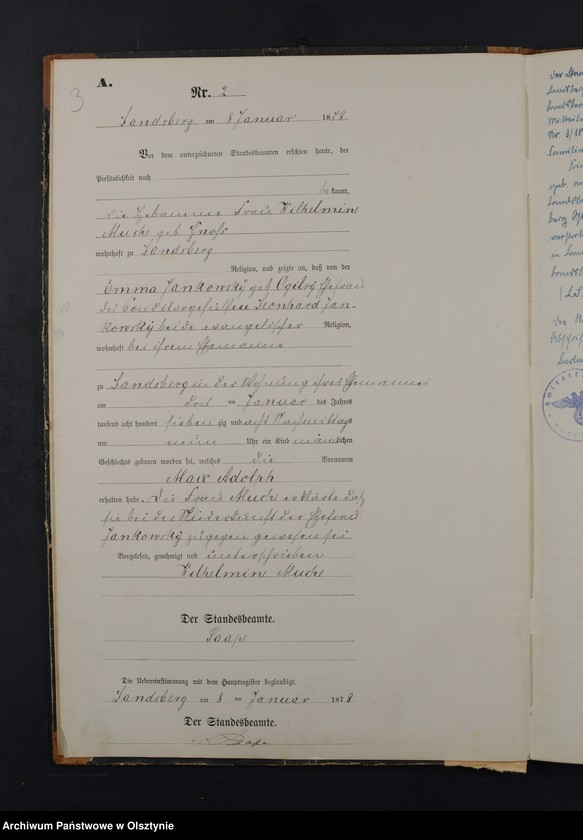 A.
3
Nr. 2
Landsberg am 8 Januar 1878
Vor dem unterzeichneten Standesbeamten erschien heute, der
Persönlichkeit nach
be kannt,
die Hebamme Frau Wilhelmine
Muche geb. Gnoss
wohnhaft zu Landsberg
Religion, und zeigte an, daß von der
Emma Jankowsky geb. Ogilvy Ehefrau
des Conditorgehülfen Leonhard Jan-
kowsky beide evangelischer Religion,
wohnhaft bei ihrem Ehemanne
zu Landsberg in der Wohnung ihres Ehemannes
am drei ten Januar des Jahres
tausend acht hundert sieben zig und acht Nachmittags
um neun Uhr ein Kind männlichen
Geschlechts geboren worden sei, welches die Vornamen
Max Adolph
erhalten habe. Die Frau Muche erklärte daß
sie bei der Niederkunft der Ehefrau
Jankowsky zugegen gewesen sei
Vorgelesen, genehmigt und unterschrieben
Wilhelmine Muche
Der Standesbeamte.
Paape
Die Uebereinstimmung mit dem Hauptregister beglaubigt.
Landsberg am 8 ten Januar 1878
Der Standesbeamte.
Paape
der
Landsberg
Nr. 3/18
geb.
in
Die
Abschrift
Archiwum Państwowe w Olsztynie